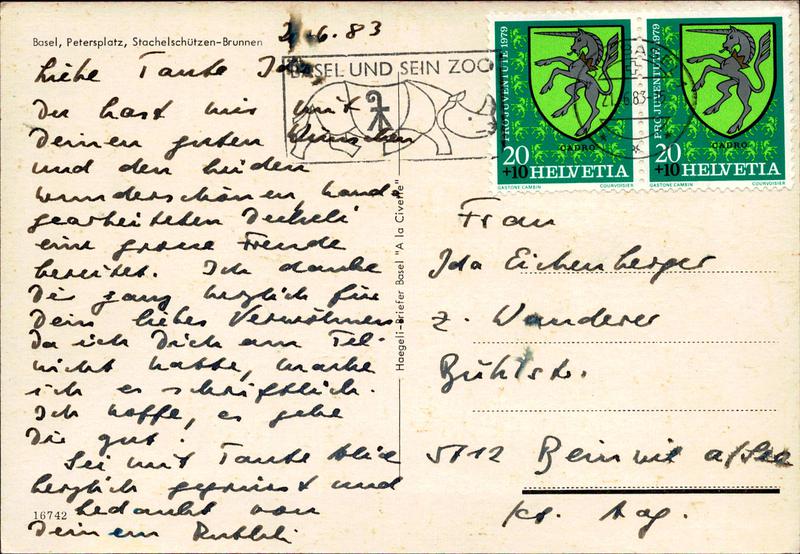 Basel, Petersplatz, Stachelschützen-Brunnen
2.6.83
Liebe Tante Ida
Du hast mir mit
Deinen guten Wünschen
und den beiden
wunderschönen, hand-
gearbeiteten Deckeli
eine grosse Freude
bereitet. Ich danke
Dir ganz herzlich für
Dein liebes Verwöhnen
Da ich Dich am Tel.
nicht hatte, mache
ich es schriftlich.
Ich hoffe, es gehe
Dir gut.
Sei mit Tante
herzlich gegrüsst und
bedankt von
Deinem
16742
Haegeli-Briefer Basel "A la Civette"
BASEL UND SEIN ZOO
PRO JUVENTUTE 1979
CADRO
20
+10 HELVETIA
GASTONE CAMBIN COURVOISIER
PRO JUVENTUTE 1979
CADRO
20
+10 HELVETIA
GASTONE CAMBIN COURVOISIER
Frau
Ida Eichenberger
z. Wanderer
Bühlstr.
5712 Beinwil a/See
Kt. Aag.